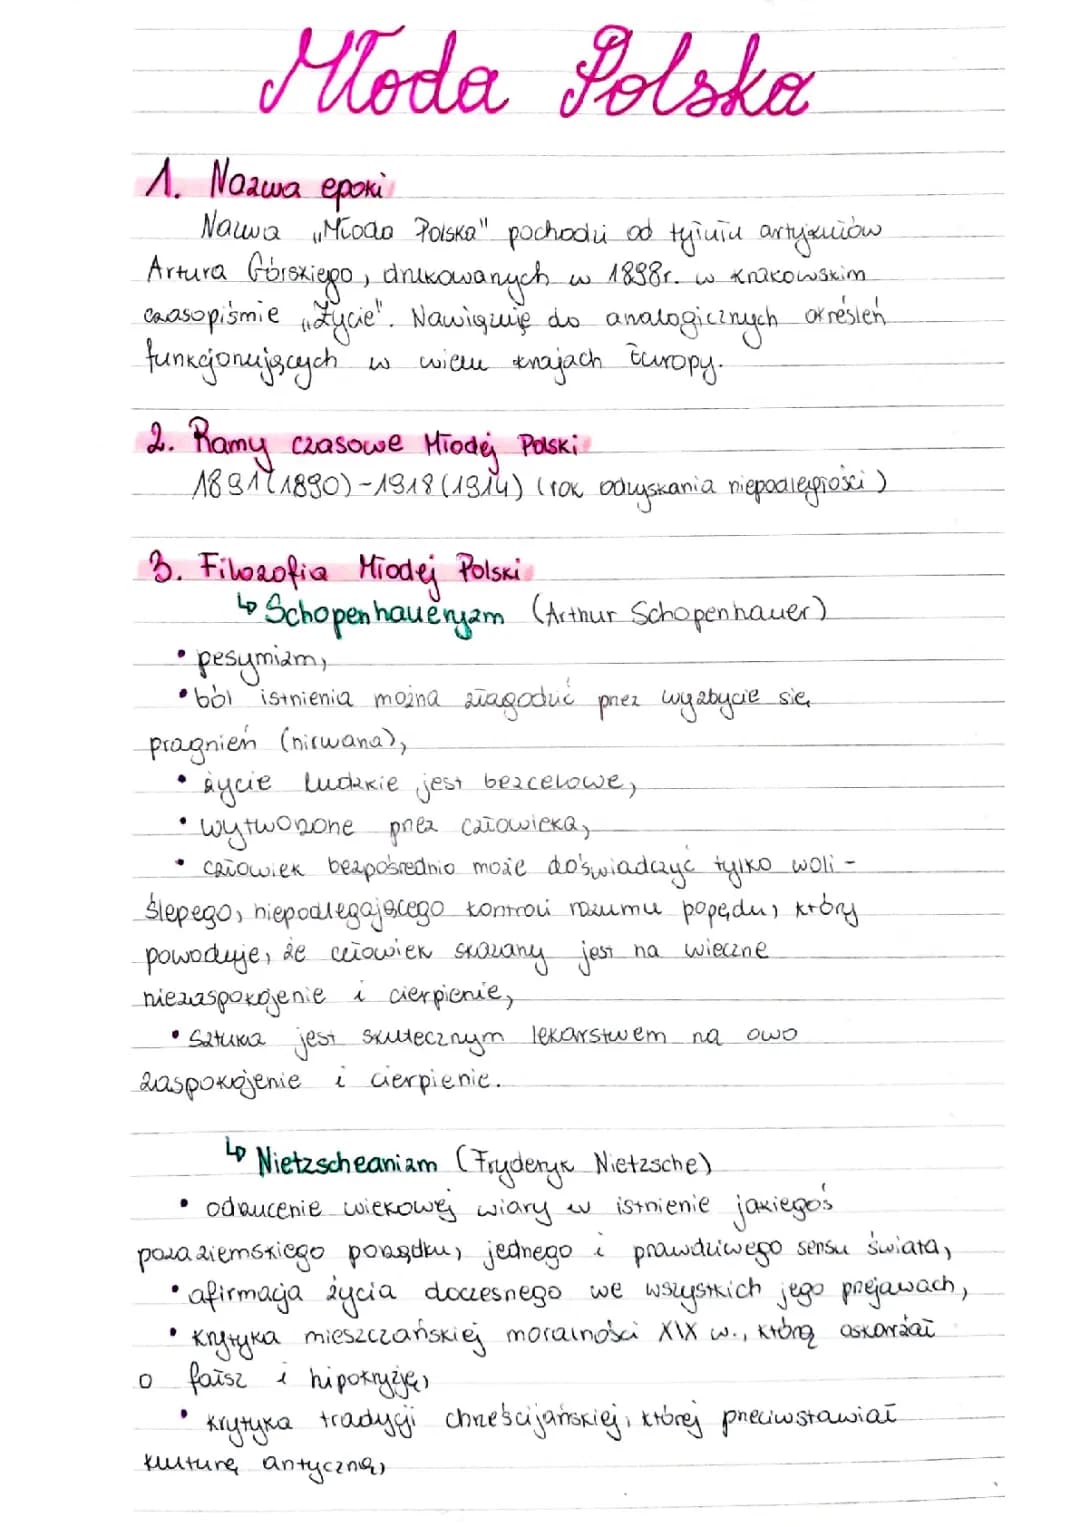 Młoda Polska
1. Nazwa epoki
Nazwa „Młoda Polska" pochodzi od tytułu artykułów
Artura Górskiego, drukowanych w 1898r. w krakowskim
czasopiśmie „Życie". Nawiązuję do analogicznych określeń
funkcjonujących w wielu krajach Europy.
2. Ramy czasowe Młodej Polski
1891(1890)-1918(1914) (rok odzyskania niepodległości)
3. Filozofia Młodej Polski
↳ Schopenhaueryzm (Arthur Schopenhauer)
• pesymizm,
• ból istnienia można złagodzić przez wyzbycie się
pragnień (nirwana),
• życie ludzkie jest bezcelowe,
• wytworzone przez człowieka,
• człowiek bezpośrednio może doświadczyć tylko woli -
ślepego, niepodlegającego kontroli rozumu popędu, który
powoduje, że człowiek skazany jest na wieczne
niezaspokojenie i cierpienie,
• Sztuka jest skutecznym lekarstwem na owo
zaspokojenie i cierpienie.
↳ Nietzscheanizm (Fryderyk Nietzsche)
• odrzucenie wiekowej wiary w istnienie jakiegoś
pozaziemskiego porządku, jednego i prawdziwego sensu świata,
• afirmacja życia doczesnego we wszystkich jego przejawach,
• krytyka mieszczańskiej moralności XIX w., którą oskarżał
o fałsz i hipokryzję,
• krytyka tradycji chrześcijańskiej, której przeciwstawiał
kulturę antyczną,